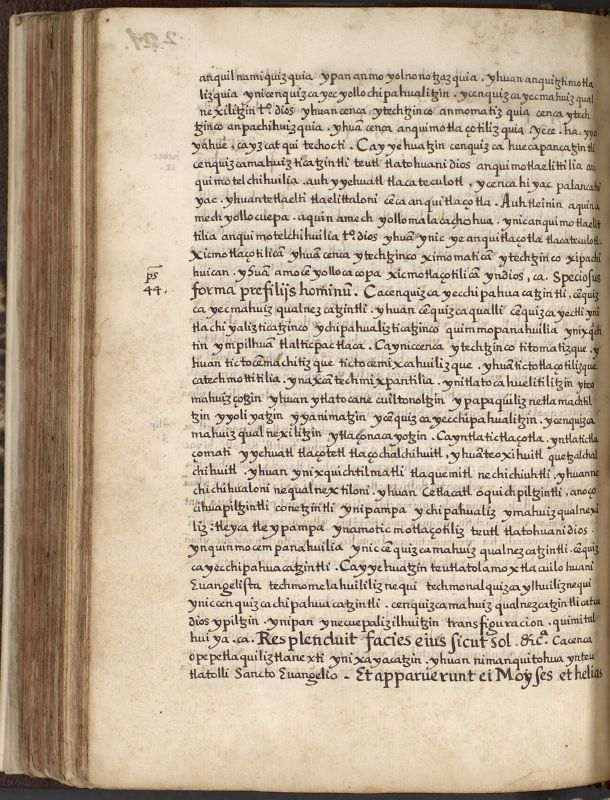 anquilnamiquizquia ypan anmoyolnonotzazquia . yhuan anquitztimotla
lizquia ynicenquizca yecyollochipahualitzin . ycenquizca yecmahuizqual
nexilitzin to. dios yhuan cenca ytechtzinco anmomatiz quia cenca ytech
tzinco anpachihuizquia . yhuā cenca anquimotlaçotiliz quia . Yece . ha . yyo
yahue, cayzcatqui techocti . Cayyehuatzin cenquizca huecapançatzintli
cenquizcamahuizticatzintli teutl tlatohuani dios anquimotlaelittilia an
quimotelchihuilia . auh yyehuatl tlacateculotl , ycenca hiyac palancahi
yac . yhuan tetlaelti tlaelittaloni cēca anquitlaçotla . Auh tleinin aquin a
mech yollocuepa . aquin amech yollomalacachohua . ynic anquimotlaelit
tilia anquimotelchihuilia to. dios yhuā ynic ye anquitlaçotla tlacateculotl .
Xicmotlaçotilicā yhuā cenca ytechtzinco ximomaticā ytechtzinco xipachi
huican . yhuā amocē yollocacopa xicmotlaçotilicā yn dios , ca . Speciosus
ps
44 .
forma prefilijs hominū . Ca cenquizca yecchipahuacatzintli , cēquiz
ca yecmahuizqualnezcatzintli . yhuan cēquizca qualli cēquizca yectli yni
tlachiyalizticatzinco ychipahualizticatzinco quimmopanahuilia ynixqch
tin ympilhuā tlalticpactlaca . Cayniccenca ytechtzinco titomatizque . y
huan tictocēmachitizque tictocemixcahuilizque . yhuā tictotlaçotilizque
catechmottitilia . ynaxcā techmixpantilia . ynitlatocahuelitilitzin yteo
mahuizçotzin yhuan ytlatocanecuiltonoltzin ypapaquiliznetlamachtil
tzin yyoliyatzin yyanimatzin ycēquizca yecchipahualitzin . ycenquizca
mahuizqualnexilitzin ytlaçonacayotzin . Cayntlatictlaçotla . yntlatictla
çomati yyehuatl tlaçotetl tlaçochalchihuitl , yhuā teoxihuitl quetzalchal
chihuitl . yhuan ynixquich tilmatli tlaquemitl nechichiuhtli . yhuanne
chichihualoni nequalnextiloni . yhuan Cetlacatl oquichpiltzintli . anoço
cihuapiltzintli conetzintli ynipampa ychipahualiz ymahuizqualnexi
liz : tleyca tleypampa ynamotic motlaçotiliz teutl tlatohuani dios .
ynquinmocempanahuilia ynic cēquizcamahuizqualnezcatzintli . cēquiz
ca yecchipahuacatzintli . Cayyehuatzin teutlatolamoxtlacuilohuani
Euangelista techmomelahuililiznequi techmonalquizcaylhuiliznequi
yniccenquizcachipahuacatzintli . cenquizcamahuizqualnezcatzintli catca
dios ypiltzin . ynipan ynecuepalizilhuitzin transfiguracion . quimital
huiya . ca . Resplenduit facies eius sicut sol . &cª. Cacenca
opepetlaquiliztlanexti ynixayacatzin . yhuan nimanquitohua ynteu
tlatolli Sancto Euangelio . Et apparuerunt ei Moyses et helias